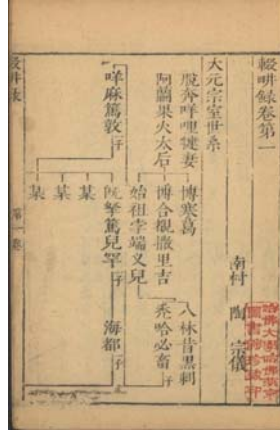 輟畊錄卷第一
南村 陶 宗儀
大元宗室世系
脫奔咩哩犍妻
阿蘭果火太后
博寒葛
博合覩撒里吉
始祖孛端叉兒
八林昔黑剌
禿哈必畜
子
咩麻篤敦
子
旣拏篤兒罕
子
海都
子
某
某
某
第一卷